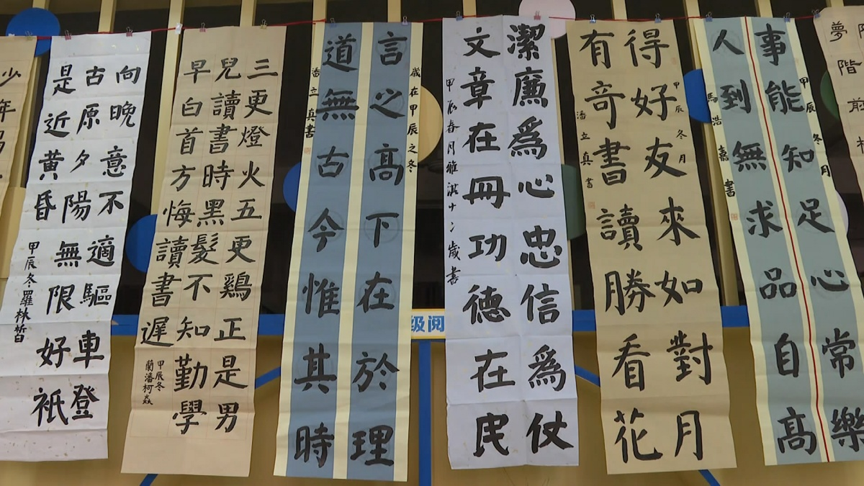 夢階前
事能知足心常樂
甲辰冬月
人到無求品自高
馬浩嘉書
得好友來如對月
甲辰冬月
有奇書讀勝看花
潘立真書
潔廉爲心忠信爲仗
文章在冊功德在民
甲辰春月雅淇十二歲書
歲在甲辰之冬
言之高下在於理
道無古今惟其時
潘立真書
三更燈火五更鷄正是男
兒讀書時黑髮不知勤學
早白首方悔讀書遲
甲辰冬
蘭潘柯焱
向晚意不適驅車登
古原夕陽無限好衹
是近黄昏
甲辰冬羅林晳
少年
级阅